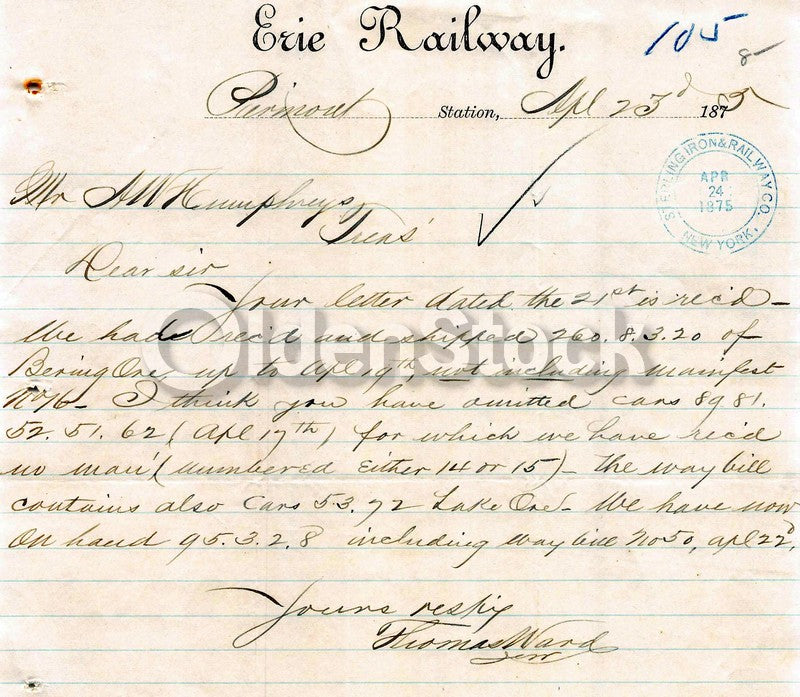 Erie Railway.
105
8
Piermont Station, Apl 23d 1875
STERLING IRON & RAILWAY CO.
APR
24
1875
NEW YORK.
Mr AW Humphreys
Treas'
Dear sir
Your letter dated the 21st is rec'd -
We had rec'd and shipped 260.8.3.20 of
Bering Ore up to apl 19th, not including manifest
No 16 - I think you have omitted cars 8981.
52.51.62 (Apl 17th) for which we have rec'd
no man' (numbered Either 14 or 15) - the way bill
contains also Cars 53.72 Lake Ore - We have now
On hand 95.3.2.8 including way bill No 50, apl 22d,
Yours respy
Thomas Ward
OldenStock